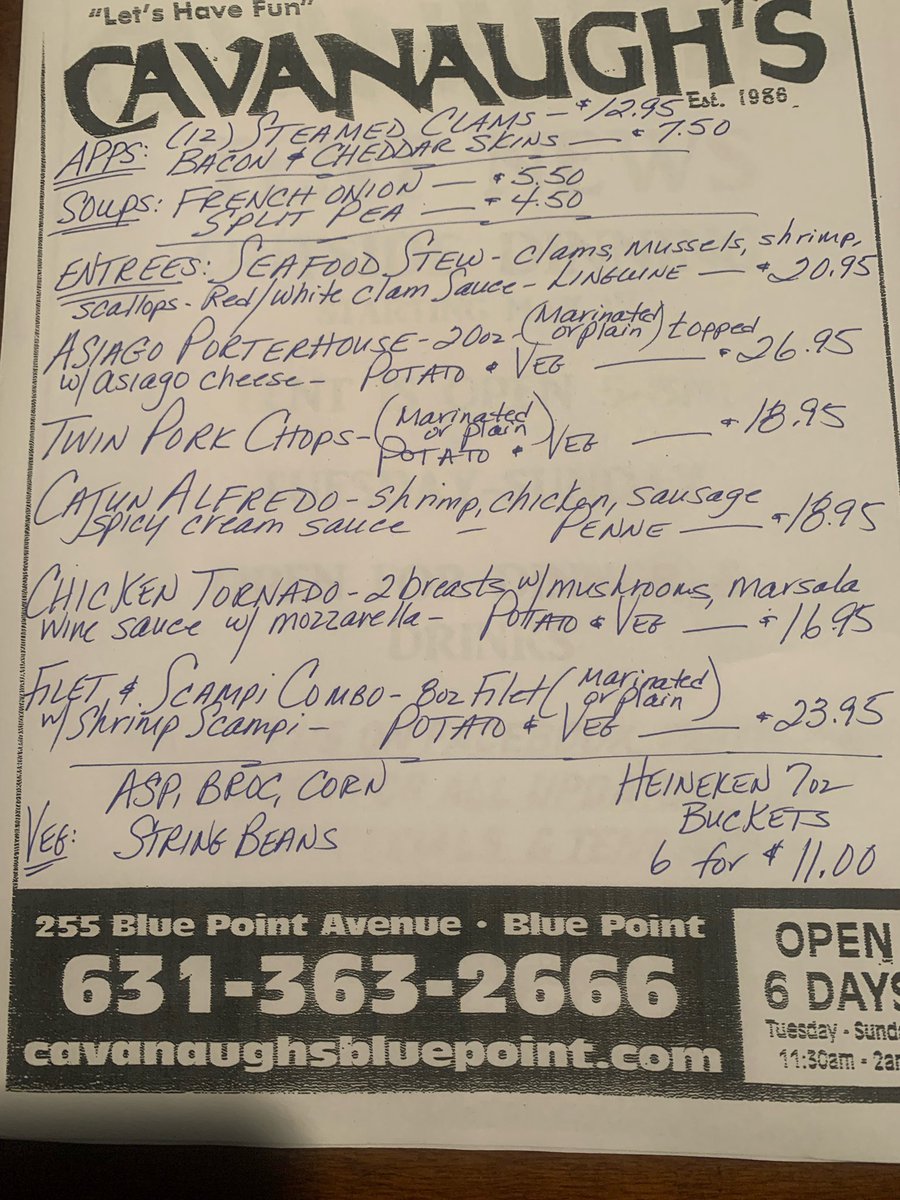 "Let's Have Fun"
CAVANAUGH'S
Est. 1986
APPS: (12) STEAMED CLAMS — $12.95
BACON & CHEDDAR SKINS — $7.50
SOUPS: FRENCH ONION — $5.50
SPLIT PEA — $4.50
ENTREES: SEAFOOD STEW - clams, mussels, shrimp,
scallops - Red/white clam Sauce - LINGUINE — $20.95
ASIAGO PORTERHOUSE - 20oz - (Marinated or plain) topped
w/ asiago cheese - POTATO & VEG — $26.95
TWIN PORK CHOPS - (Marinated or plain)
POTATO & VEG — $18.95
CAJUN ALFREDO - shrimp, chicken, sausage
spicy cream sauce - PENNE — $18.95
CHICKEN TORNADO - 2 breasts w/ mushrooms, marsala
wine sauce w/ mozzarella - POTATO & VEG — $16.95
FILET & SCAMPI COMBO - 8oz Filet (Marinated or plain)
w/ Shrimp Scampi - POTATO & VEG — $23.95
VEG: ASP, BROC, CORN
STRING BEANS
HEINEKEN 7oz
BUCKETS
6 for $11.00
255 Blue Point Avenue • Blue Point
631-363-2666
cavanaughsbluepoint.com
OPEN
6 DAYS
Tuesday - Sund
11:30am - 2a